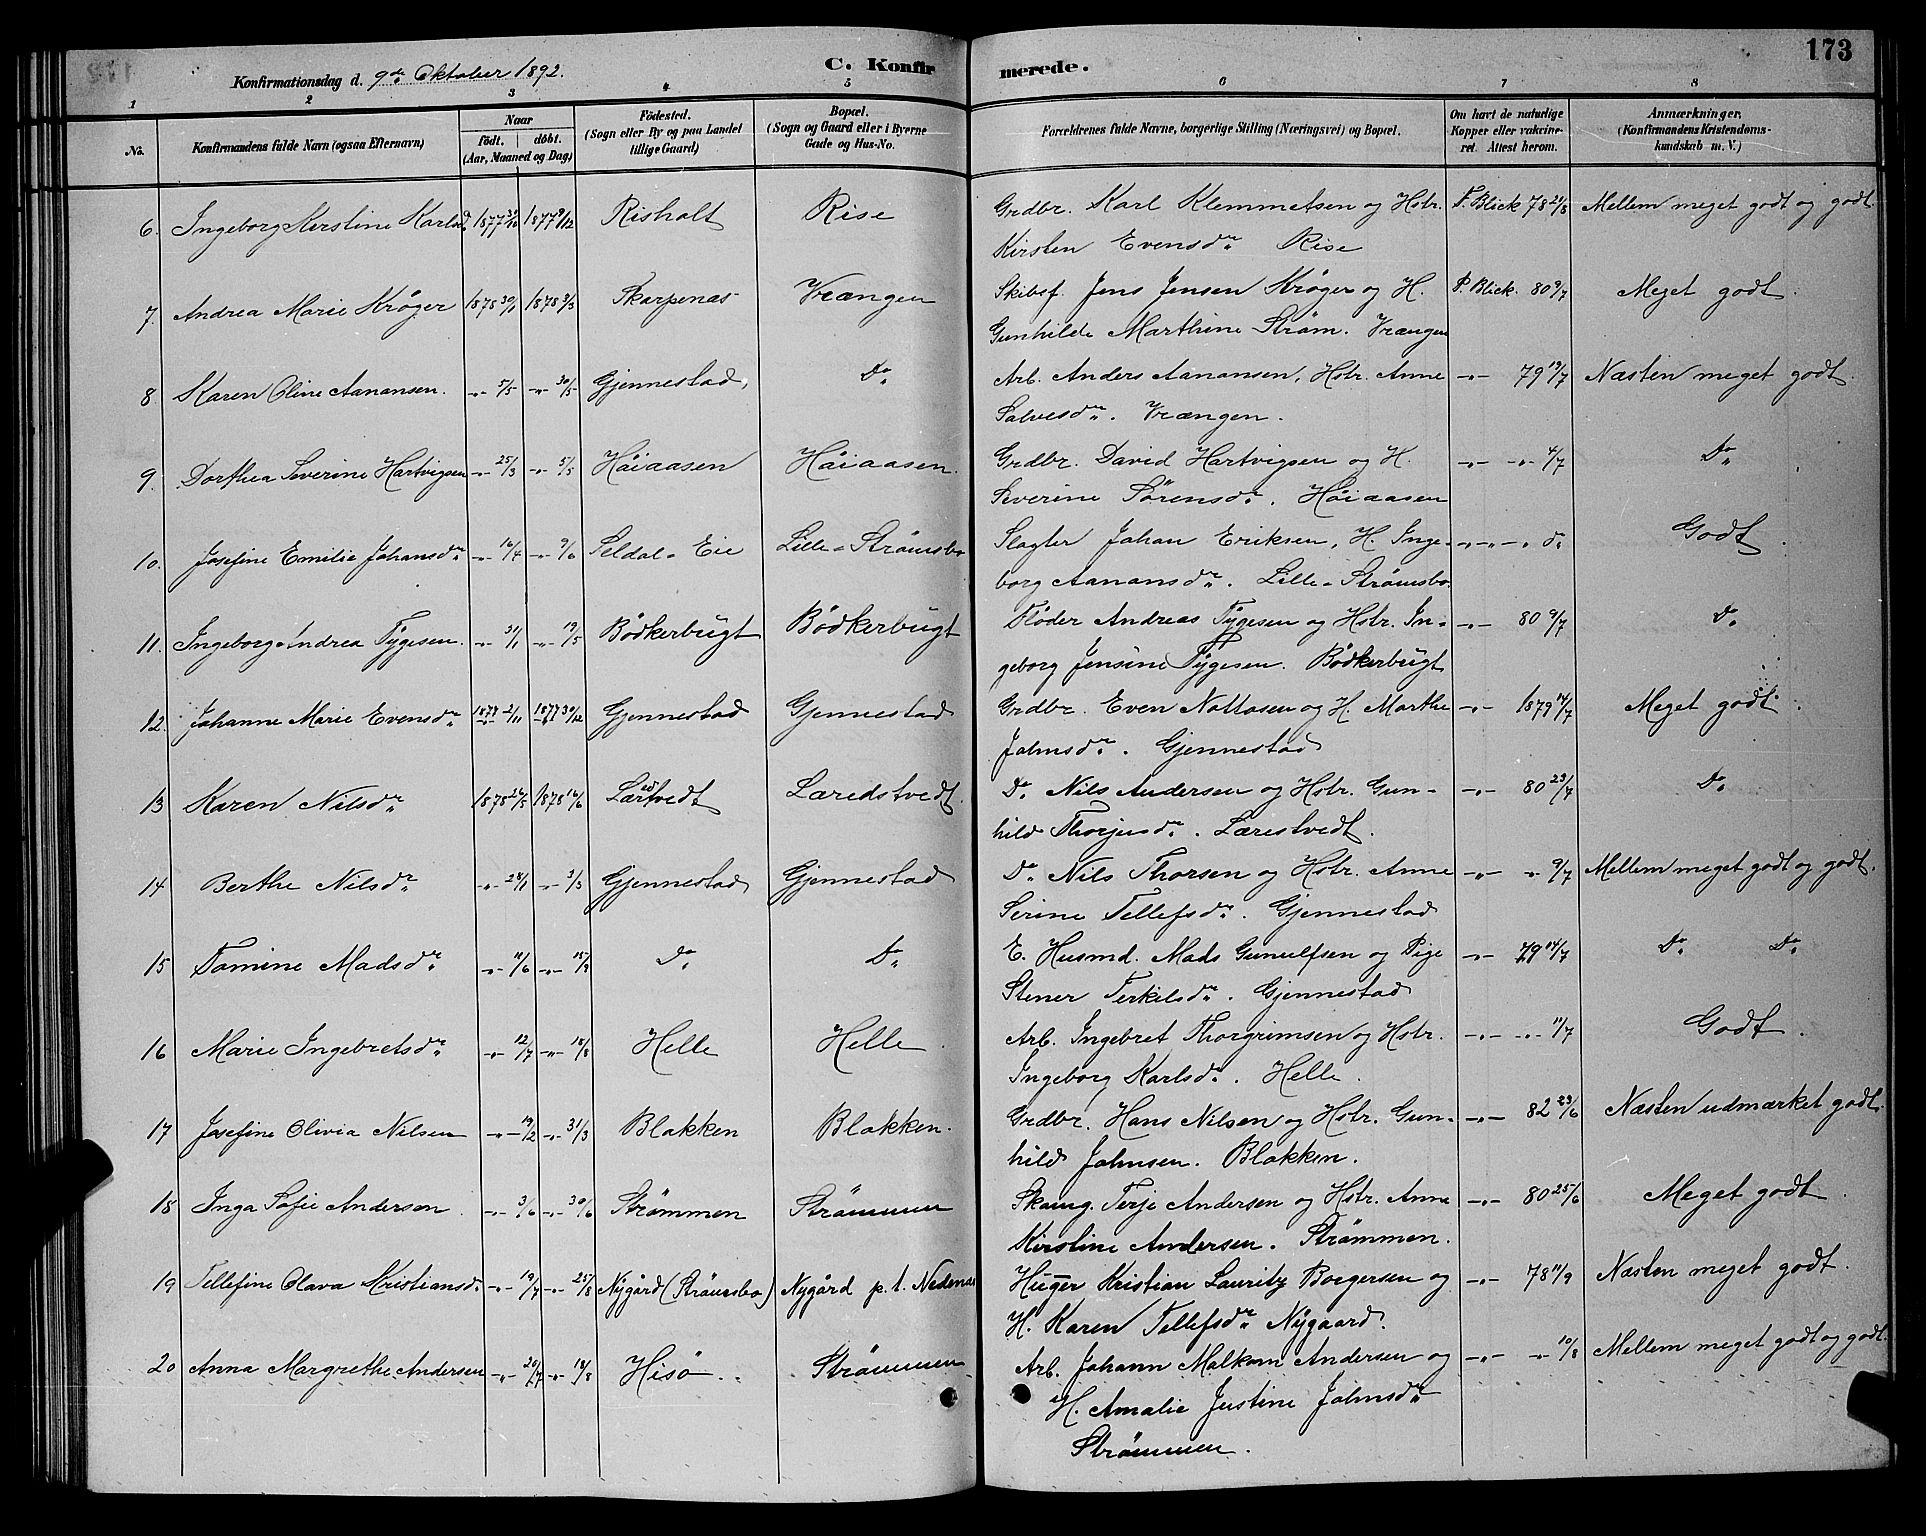 173
Konfirmationsdag d. 9de Oktober 1892.
C. Konfir merede.
1 2 3 4 5 6 7 8
No. Konfirmandens fulde Navn (ogsaa Efternavn) Naar født. døbt. (Aar, Maaned og Dag) Fødested. (Sogn eller By og paa Landet tillige Gaard) Bopæl. (Sogn og Gaard eller i Byerne Gade og Hus-No. Forældrenes fulde Navne, borgerlige Stilling (Næringsvei) og Bopæl. Om havt de naturlige Kopper eller vaccineret. Attest herom. Anmærkninger. (Konfirmandens Kristendomskundskab m. V.)
6. Ingeborg Kirstine Karlsd. 1877 30/10 1877 9/12 Risholt Rise Grdbr. Karl Klemmetsen og Hstr. F. Blick 78 21/8 Mellem meget godt og godt.
Kirsten Evensdr. Rise
7. Andrea Marie Krøger 1878 30/1 1878 3/3 Skarpenæs Vrængen Skibsf. Jens Jensen Krøger og H. P. Blick. 80 9/7 Meget godt.
Gunhilde Marthine Strøm. Vrængen
8. Karen Oline Aanansen. -"- 5/5 -"- 30/5 Gjennestad, Do. Arb. Anders Aanansen, Hstr. Anne -"- 79 19/7 Næsten meget godt.
Salvesdr. Vrængen.
9. Dorthea Severine Hartvigsen -"- 25/3 -"- 5/5 Høiaasen Høiaasen. Grdbr. David Hartvigsen og H. -"- -"- 4/7 Do.
Severine Sørensdr. Høiaasen
10. Josefine Emilie Johansdr. -"- 16/4 -"- 9/6 Seldal-Eie Lille-Strømsbo Slagter Johan Eriksen, H. Inge- -"- -"- do. Godt.
borg Aanansdr. Lille-Strømsbo.
11. Ingeborg Andrea Tygesen. -"- 31/1 -"- 19/5 Bødkerbugt Bødkerbugt Fløder Andreas Tygesen og Hstr. In- -"- 80 9/7 Do.
geborg Jensine Tygesen. Bødkerbugt
12. Johanne Marie Evensdr. 1877 2/11 1877 30/12 Gjennestad Gjennestad Grdbr. Even Nottosen og H. Marthe -"- 1879 14/7 Meget godt.
Johnsdr. Gjennestad
13 Karen Nilsdr. 1878 26/5 1878 16/6 Lærtvedt Læredstvedt. Do. Nils Andersen og Hstr. Gun- -"- 80 23/7 Do.
hild Thorjusdr. Lærestvedt.
14 Berthe Nilsdr. -"- 28/1 -"- 3/3 Gjennestad Gjennestad Do. Nils Thorsen og Hstr. Anne -"- -"- 9/7 Mellem meget godt og godt.
Serine Tellefsdr. Gjennestad
15 Tomine Madsdr. -"- 11/6 -"- 15/9 Do. Do. E. Husmd. Mads Gunulfsen og Pige -"- 79 14/7 Do. Do.
Stener Terkelsdr. Gjennestad
16 Marie Ingebretsdr. -"- 12/7 -"- 18/8 Helle Helle. Arb. Ingebret Thorgrimsen og Hstr. -"- -"- 11/7 Godt.
Ingeborg Karlsdr. Helle.
17 Josefine Olivia Nilsen -"- 19/2 -"- 31/3 Blakken Blakken. Grdbr. Hans Nilsen og Hstr. Gun- -"- 82 23/6 Næsten udmærket godt.
hild Johnsen. Blakken.
18 Inga Sofie Andersen. -"- 3/6 -"- 30/6 Strømmen Strømmen Skomg. Terje Andersen og Hstr. Anne -"- 80 25/6 Meget godt.
Kirstine Andersen. Strømmen.
19 Tellefine Olava Kristiansd. -"- 19/7 -"- 25/8 Nygård (Strømsbo) Nygård p. t. Nedenæs Huger Kristian Lauritz Borgersen og -"- 78 11/9 Næsten meget godt.
H. Karen Tellefsdr. Nygaard.
20 Anna Margrethe Andersen -"- 20/7 -"- 18/8 Hisø Strømmen Arb. Johann Malkom Andersen og -"- -"- 10/8 Mellem meget godt og godt.
H. Amalie Justine Johnsdr.
Strømmen.